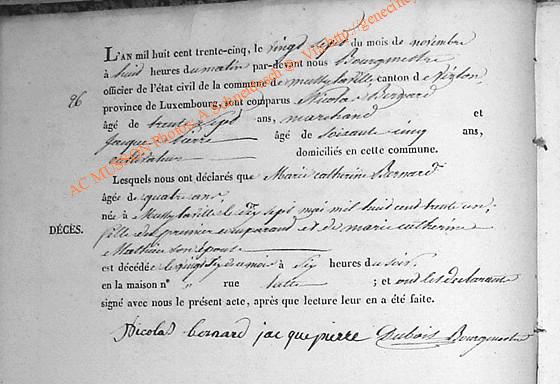 L'AN mil huit cent trente-cinq, le vingt sept du mois de novembre
à huit heures du matin par-devant nous Bourgmestre
officier de l'état civil de la commune de mussy la ville canton de Virton,
province de Luxembourg, sont comparus Nicolas Bernard
26
âgé de trente sept ans, marchand et
Jacque pierre âgé de soixante cinq ans,
cultivateur domiciliés en cette commune.
Lesquels nous ont déclarés que Marie catherine Bernard
âgée de quatre ans,
née à Mussy la ville le dix sept mai mil huit cent trente un,
DÉCÈS.
fille du premier comparant et de marie catherine
Mathieu son épouse
est décédée le vingt six du mois à six heures du soir.
en la maison n° " rue ; et ont les declarants
signé avec nous le présent acte, après que lecture leur en a été faite.
Nicolas bernard jacque pierre Dubois Bourgmestre
AC MUSSON Photos: A Schneltenbach ©